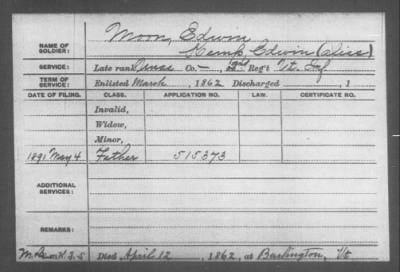 Moon, Edwin
NAME OF SOLDIER: Kemp, Edwin (alias)
SERVICE: Late rank Co. —, 2nd Reg't Vt. Inf.
TERM OF SERVICE: Enlisted March, 1862 Discharged , 1
DATE OF FILING. CLASS. APPLICATION NO. LAW. CERTIFICATE NO.
Invalid,
Widow,
Minor,
1891 May 4 Father 515373
ADDITIONAL SERVICES:
REMARKS:
Died April 12, 1862, at Burlington, Vt